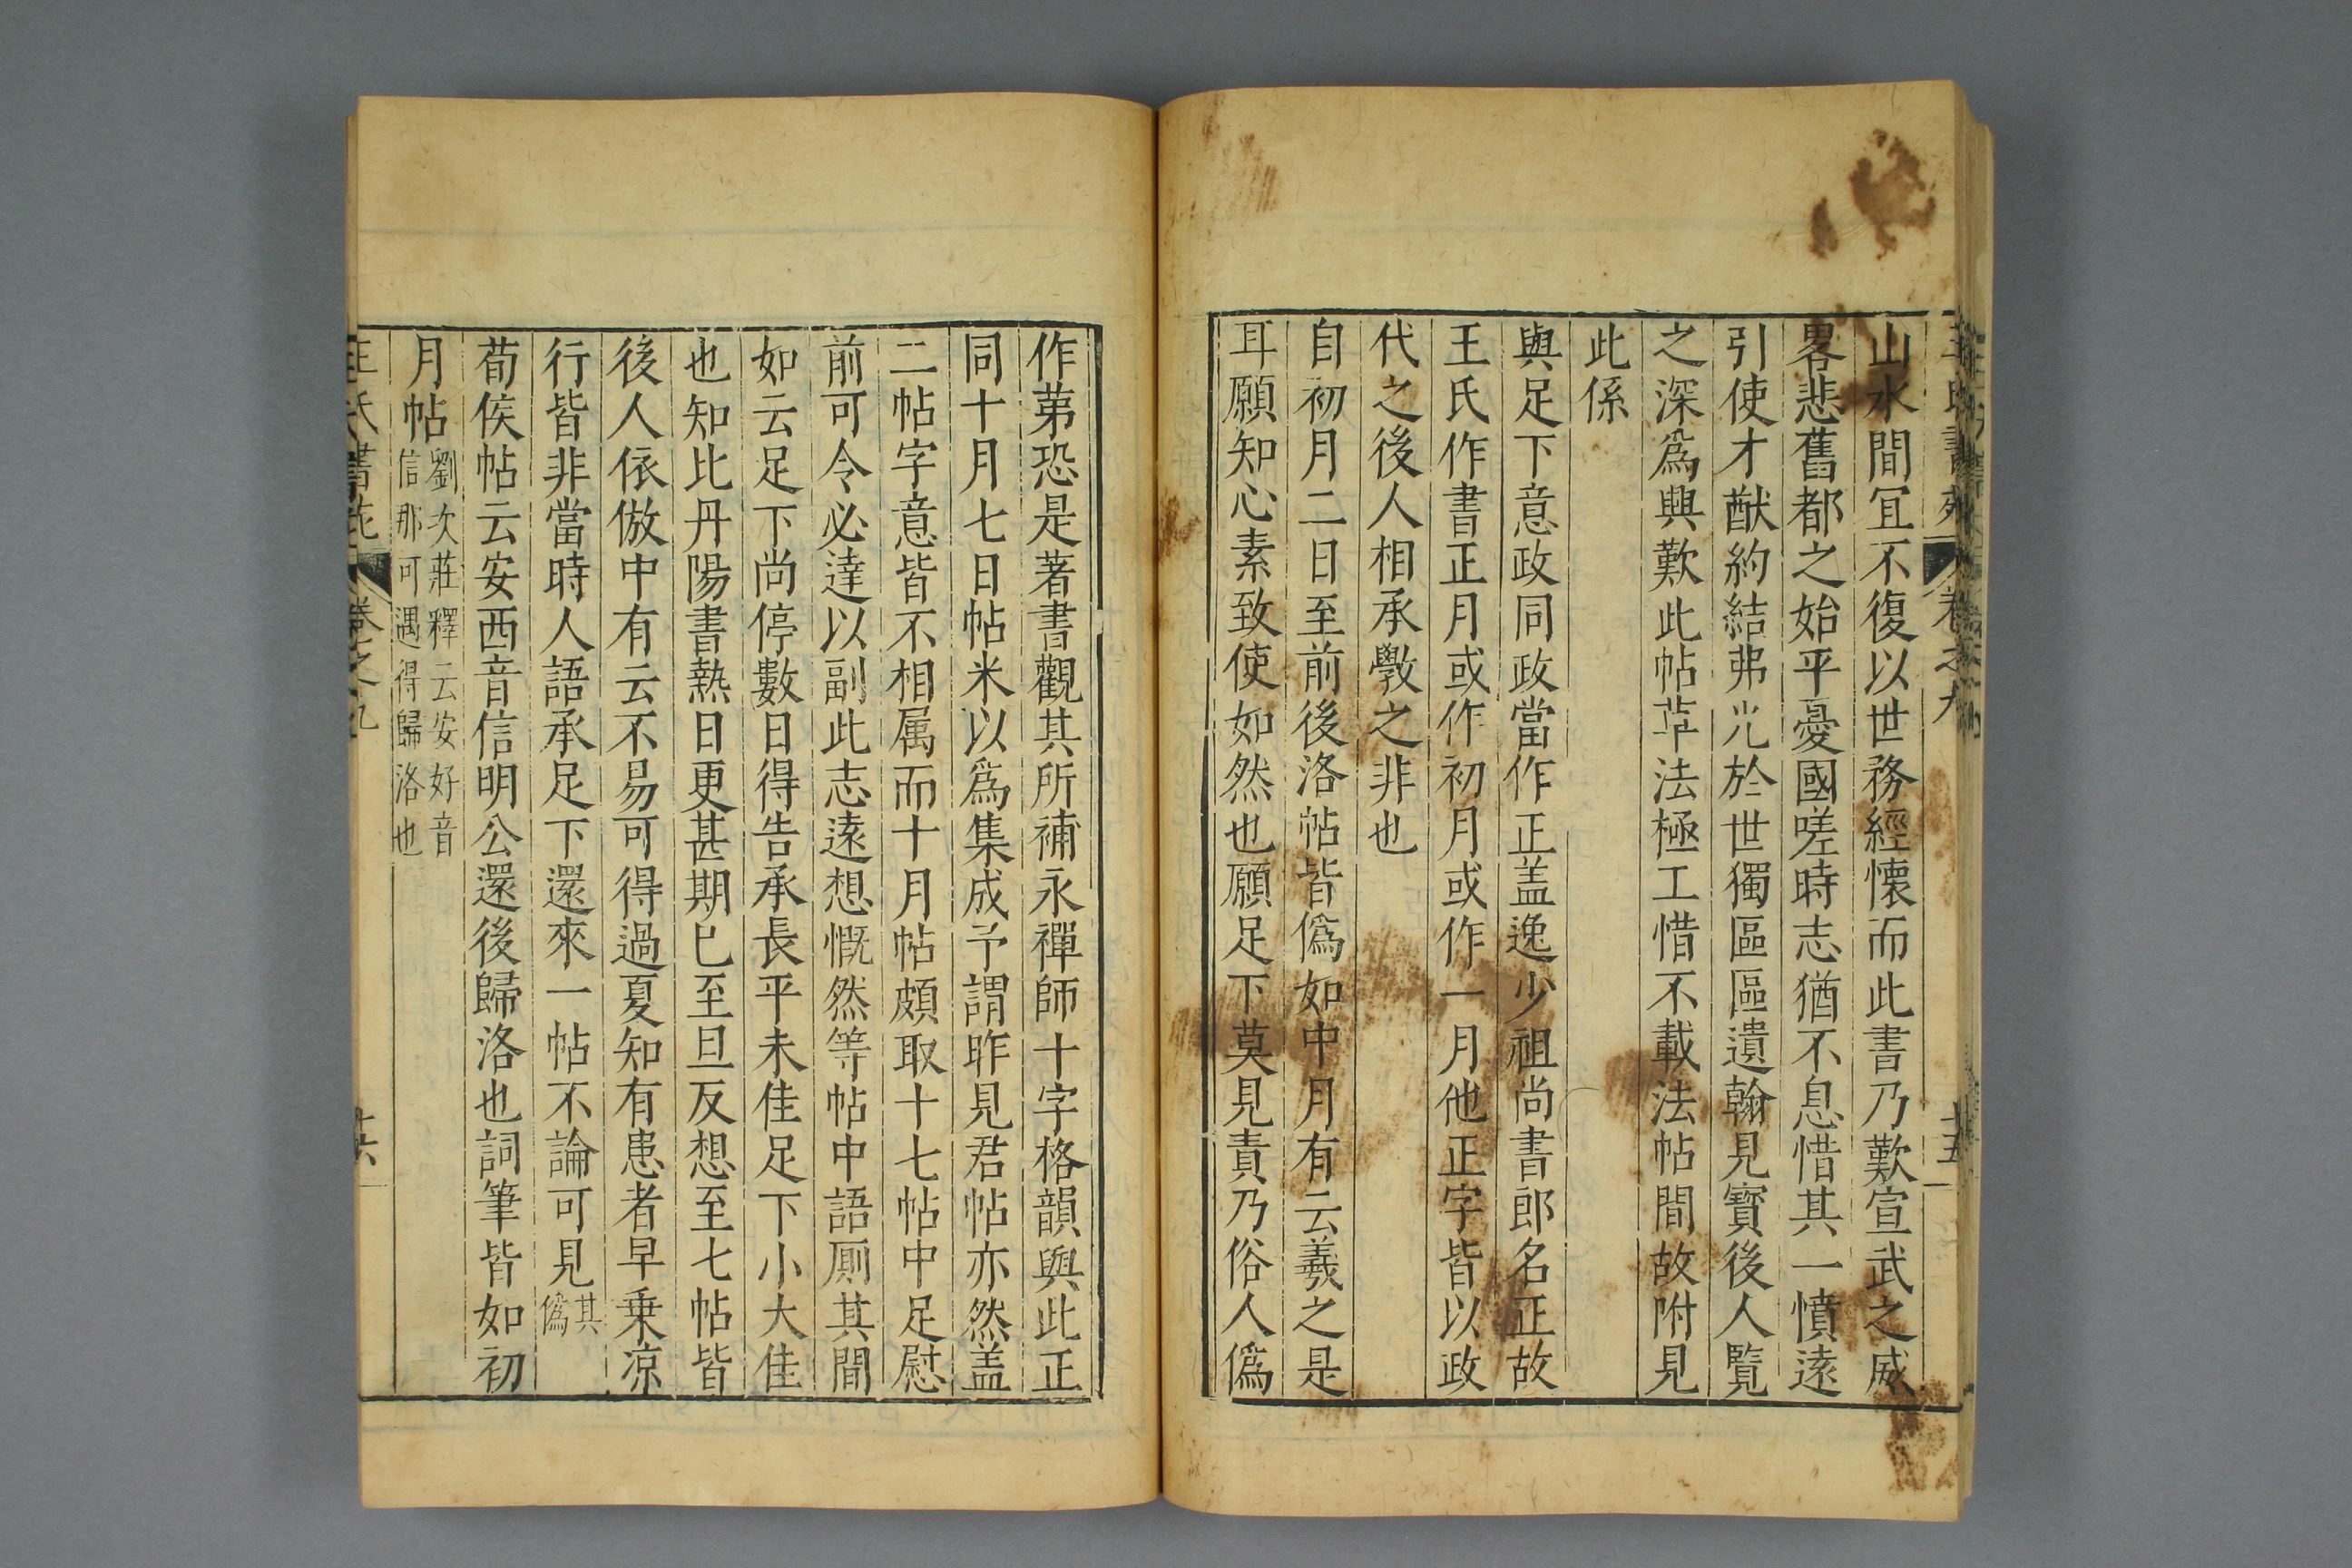 山水間冝不復以世務經懷而此書乃歎宣武之威
畧悲舊都之始平憂國嗟時志猶不息惜其一憤遠
引使才猷約結弗光於世獨區區遺翰見寳後人覽
之深爲興歎此帖草法極工惜不載法帖間故附見
此係
與足下意政同政當作正盖逸少祖尚書郎名正故
王氏作書正月或作初月或作一月他正字皆以政
代之後人相承斆之非也
自初月二日至前後洛帖皆僞如中月有云羲之是
耳願知心素致使如然也願足下莫見責乃俗人僞
作苐恐是著書觀其所補永禪師十字格韻與此正
同十月七日帖米以爲集成予謂昨見君帖亦然盖
二帖字意皆不相属而十月帖頗取十七帖中足慰
前可令必達以副此志遠想慨然等帖中語厠其間
如云足下尚停數日得告承長平未佳足下小大佳
也知比丹陽書熱日更甚期已至旦反想至七帖皆
後人依倣中有云不易可得過夏知有患者早乗凉
行皆非當時人語承足下還來一帖不論可見其
僞
荀侯帖云安西音信明公還後歸洛也詞筆皆如初
月帖劉次莊釋云安好音
信那可遇得歸洛也
王氏書苑 卷之九 十六